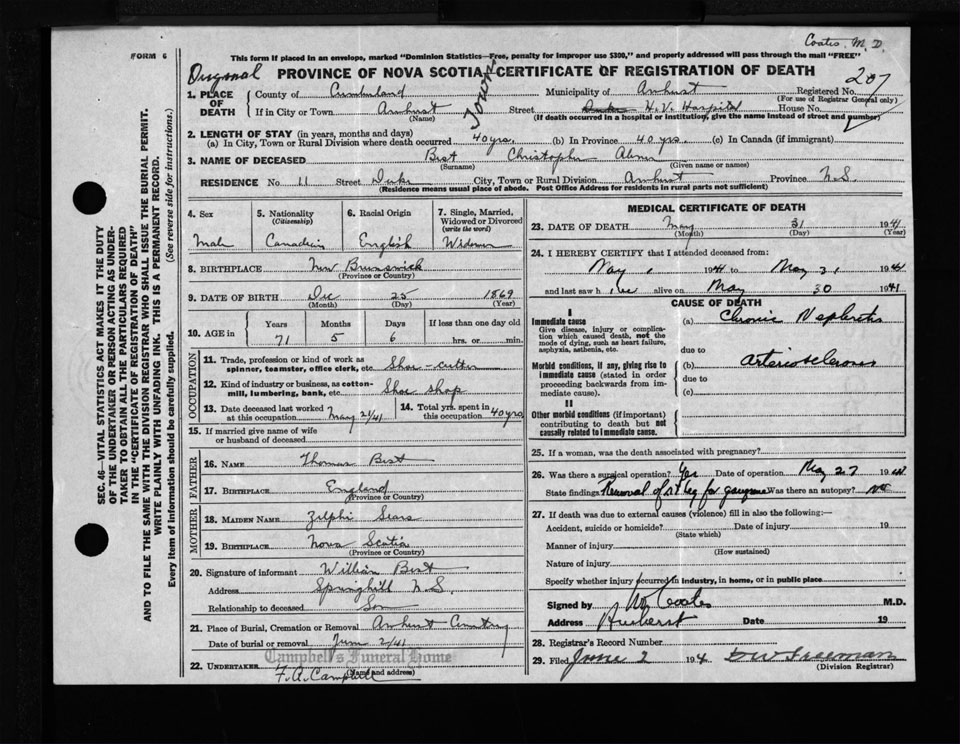 Coates. M. D.
FORM 6
This form if placed in an envelope, marked "Dominion Statistics—Free, penalty for improper use $300," and properly addressed will pass through the mail "FREE"
Original
PROVINCE OF NOVA SCOTIA—CERTIFICATE OF REGISTRATION OF DEATH
207
1. PLACE OF DEATH
County of Cumberland Municipality of Amherst Registered No.
(For use of Registrar General only)
Town
If in City or Town Amherst Street H.V. Hospital House No.
(Name) (If death occurred in a hospital or institution, give the name instead of street and number)
2. LENGTH OF STAY (in years, months and days)
(a) In City, Town or Rural Division where death occurred 40 yrs. (b) In Province 40 yrs. (c) In Canada (if immigrant)
3. NAME OF DECEASED Best Christopher Abner
(Surname) (Given name or names)
RESIDENCE No 11 Street Duke City, Town or Rural Division Amherst Province N.S.
(Residence means usual place of abode. Post Office Address for residents in rural parts not sufficient)
4. Sex
Male
5. Nationality
(Citizenship)
Canadian
6. Racial Origin
English
7. Single, Married, Widowed or Divorced
(write the word)
Widower
8. BIRTHPLACE New Brunswick
(Province or Country)
9. DATE OF BIRTH Dec 25 1869
(Month) (Day) (Year)
10. AGE in
Years Months Days If less than one day old
71 5 6 hrs. or min.
OCCUPATION
11. Trade, profession or kind of work as
spinner, teamster, office clerk, etc. Shoe-cutter
12. Kind of industry or business, as cotton-
mill, lumbering, bank, etc. Shoe shop
13. Date deceased last worked
at this occupation May 21/41
14. Total yrs. spent in
this occupation 40 yrs
15. If married give name of wife
or husband of deceased
FATHER
16. NAME Thomas Best
17. BIRTHPLACE England
(Province or Country)
MOTHER
18. MAIDEN NAME Zilphi Sears
19. BIRTHPLACE Nova Scotia
(Province or Country)
20. Signature of informant William Best
Address Springhill N.S.
Relationship to deceased Son
21. Place of Burial, Cremation or Removal Amherst Cemetery
Date of burial or removal June 2/41
Campbell's Funeral Home
22. UNDERTAKER F. A. Campbell
(Name and address)
MEDICAL CERTIFICATE OF DEATH
23. DATE OF DEATH May 31 1941
(Month) (Day) (Year)
24. I HEREBY CERTIFY that I attended deceased from:
May 1 1941 to May 31 1941
and last saw h alive on May 30 1941
CAUSE OF DEATH
I
Immediate cause
Give disease, injury or complica-
tion which caused death, not the
mode of dying, such as heart failure,
asphyxia, asthenia, etc.
(a) Chronic Nephritis
due to
Morbid conditions, if any, giving rise to
immediate cause (stated in order
proceeding backwards from im-
mediate cause).
(b) arteriosclerosis
due to
(c)
II
Other morbid conditions (if important)
contributing to death but not
causally related to immediate cause.
25. If a woman, was the death associated with pregnancy?
26. Was there a surgical operation? Yes Date of operation May 27 1941
State findings Removal of rt leg for gangrene Was there an autopsy? No
27. If death was due to external causes (violence) fill in also the following:—
Accident, suicide or homicide? Date of injury 19
(State which)
Manner of injury
(How sustained)
Nature of injury
Specify whether injury occurred in industry, in home, or in public place
Signed by Coates M.D.
Address Amherst Date 19
28. Registrar's Record Number
29. Filed June 2 194 D W Freeman
(Division Registrar)
SEC. 46—VITAL STATISTICS ACT MAKES IT THE DUTY
OF THE UNDERTAKER OR PERSON ACTING AS UNDER-
TAKER TO OBTAIN ALL THE PARTICULARS REQUIRED
IN THE "CERTIFICATE OF REGISTRATION OF DEATH"
AND TO FILE THE SAME WITH THE DIVISION REGISTRAR WHO SHALL ISSUE THE BURIAL PERMIT.
WRITE PLAINLY WITH UNFADING INK. THIS IS A PERMANENT RECORD.
Every item of information should be carefully supplied. (See reverse side for instructions.)